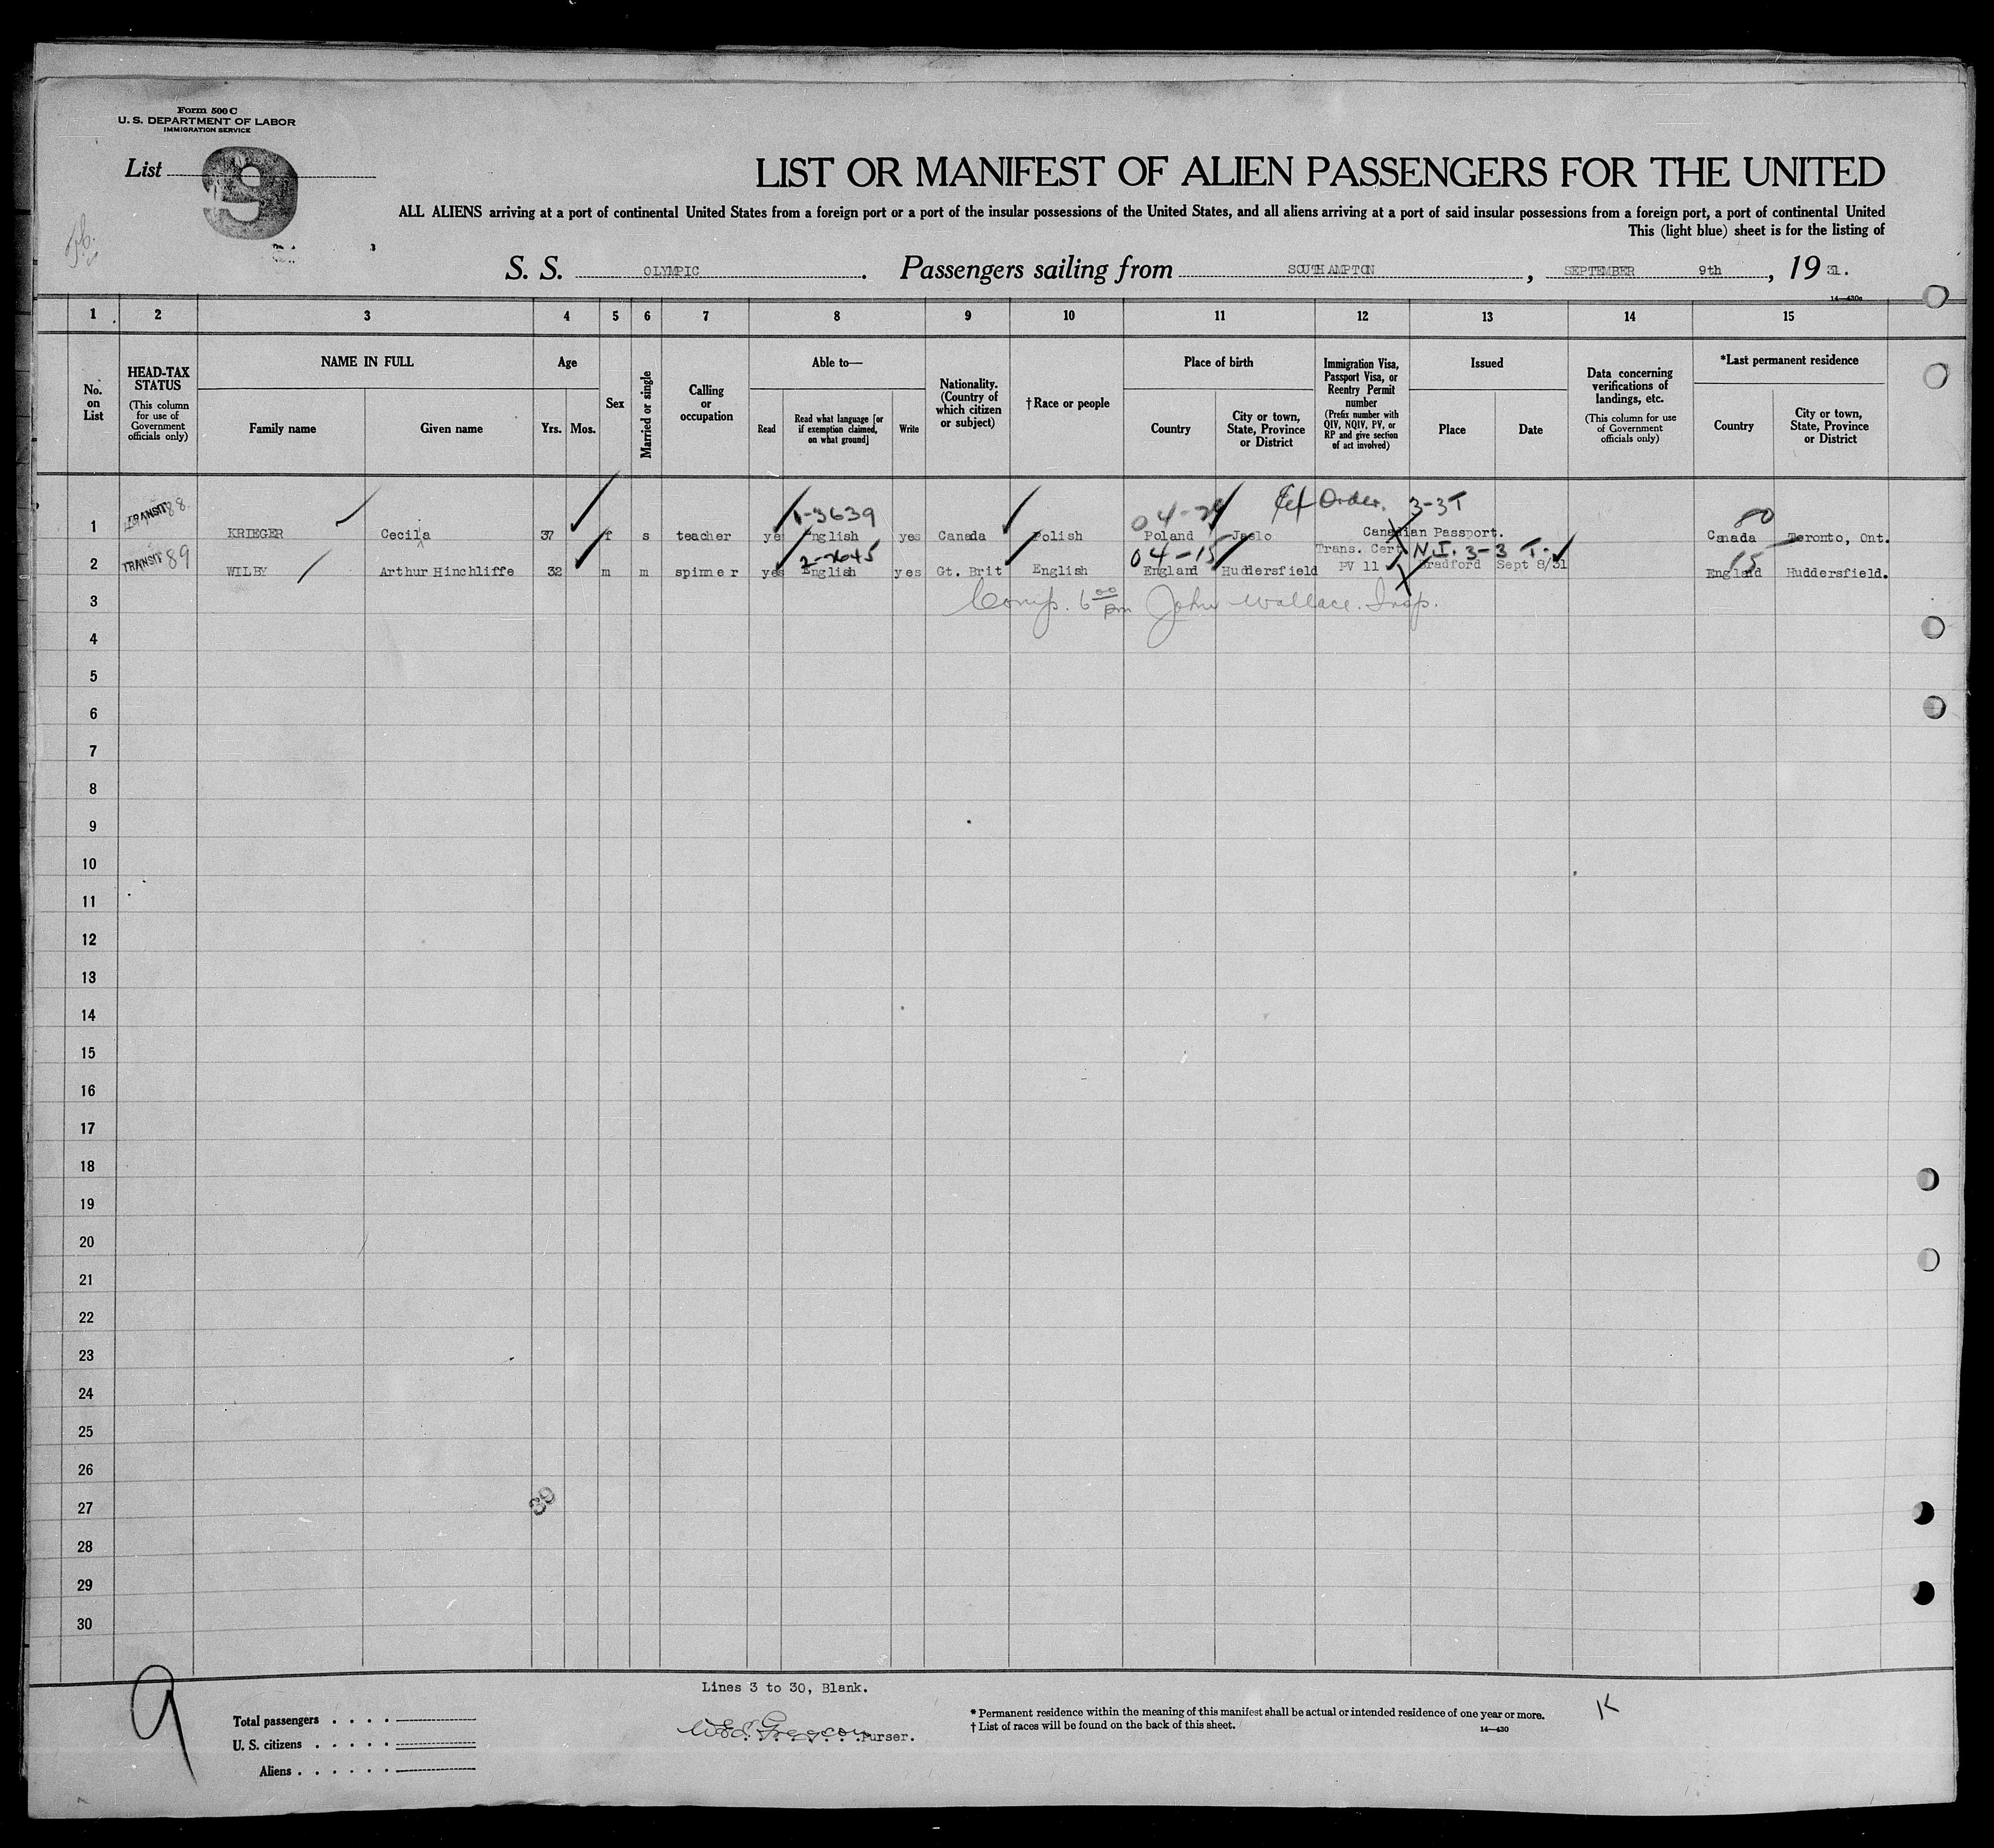 Form 500 C
U. S. DEPARTMENT OF LABOR
IMMIGRATION SERVICE
List 9
LIST OR MANIFEST OF ALIEN PASSENGERS FOR THE UNITED
ALL ALIENS arriving at a port of continental United States from a foreign port or a port of the insular possessions of the United States, and all aliens arriving at a port of said insular possessions from a foreign port, a port of continental United
This (light blue) sheet is for the listing of
S. S. OLYMPIC. Passengers sailing from SOUTHAMPTON, SEPTEMBER 9th, 19 31.
1 2 3 4 5 6 7 8 9 10 11 12 13 14 15
No. on List
HEAD-TAX STATUS (This column for use of Government officials only)
NAME IN FULL
Family name
Given name
Age
Yrs. Mos.
Sex
Married or single
Calling or occupation
Able to—
Read
Read what language [or if exemption claimed, on what ground]
Write
Nationality. (Country of which citizen or subject)
†Race or people
Place of birth
Country
City or town, State, Province or District
Immigration Visa, Passport Visa, or Reentry Permit number (Prefix number with QIV, NQIV, PV, or RP and give section of act involved)
Issued
Place
Date
Data concerning verifications of landings, etc. (This column for use of Government officials only)
*Last permanent residence
Country
City or town, State, Province or District
14—430a
1-3639 04-29 Order. 3-3T 80
1 TRANSIT 88 KRIEGER Cecila 37 f s teacher yes English yes Canada Polish Poland Jaslo Canadian Passport. Canada Toronto, Ont.
2-2645 04-15 Trans. Cert. N.I. 3-3 T. 15
2 TRANSIT 89 WILBY Arthur Hinchliffe 32 m m spinner yes English yes Gt. Brit English England Huddersfield PV 11 Bradford Sept 8/31 England Huddersfield.
3 Comp. 6 00 pm John Wallace. Insp.
4
5
6
7
8
9
10
11
12
13
14
15
16
17
18
19
20
21
22
23
24
25
26
27 39
28
29
30
9
Lines 3 to 30, Blank.
Total passengers
U. S. citizens
Aliens
Purser.
* Permanent residence within the meaning of this manifest shall be actual or intended residence of one year or more.
† List of races will be found on the back of this sheet.
14—430
K